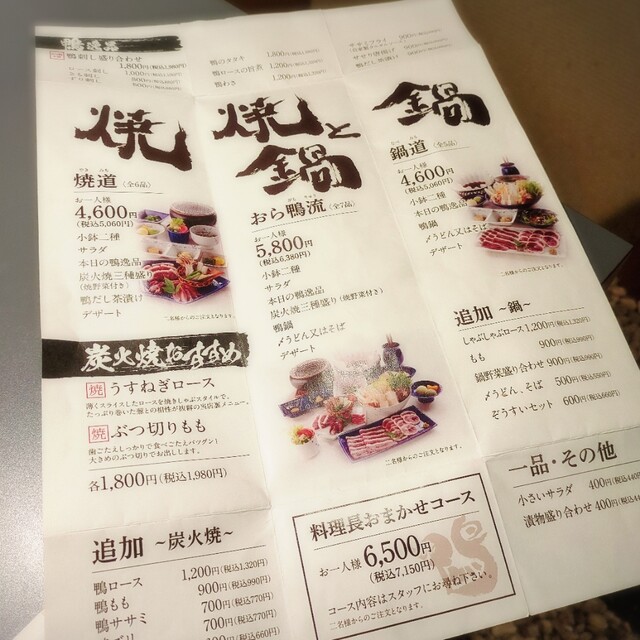 鴨逸品
鴨刺し盛り合わせ
1,800円(税込1,980円)
鴨のタタキ
鴨ロースの旨煮 1,200円
鴨わさ 1,200円
鴨だし茶漬け
焼
焼道 (全6品)
お一人様
4,600円
(税込5,060円)
小鉢二種
サラダ
本日の鴨逸品
炭火焼三種盛り
(焼野菜付き)
鴨だし茶漬け
デザート
二名様からのご注文となります。
焼と鍋
おら鴨流 (全7品)
お一人様
5,800円
(税込6,380円)
小鉢二種
サラダ
本日の鴨逸品
炭火焼三種盛り(焼野菜付き)
鴨鍋
〆うどん又はそば
デザート
二名様からのご注文となります。
鍋
鍋道 (全5品)
お一人様
4,600円
(税込5,060円)
小鉢二種
本日の鴨逸品
鴨鍋
〆うどん又はそば
デザート
二名様からのご注文となります。
炭火焼おすすめ
焼 うすねぎロース
薄くスライスしたロースを焼きしゃぶスタイルで。
たっぷり巻いた葱との相性が抜群の当店案メニュー。
焼 ぶつ切りもも
歯ごたえしっかりで食べごたえバツグン!
大きめのぶつ切りでお出しします。
各1,800円(税込1,980円)
追加 ~炭火焼~
鴨ロース 1,200円(税込1,320円)
鴨もも 900円(税込990円)
鴨ササミ 700円(税込770円)
700円(税込770円)
料理長おまかせコース
お一人様 6,500円
(税込7,150円)
コース内容はスタッフにお尋ね下さい。
二名様からのご注文となります。
追加 ~鍋~
しゃぶしゃぶロース 1,200円(税込1,320円)
もも 900円(税込990円)
鍋野菜盛り合わせ 900円(税込990円)
〆うどん、そば 500円(税込550円)
ぞうすいセット 600円(税込660円)
一品・その他
小さいサラダ 400円(税込440円
漬物盛り合わせ 400円(税込